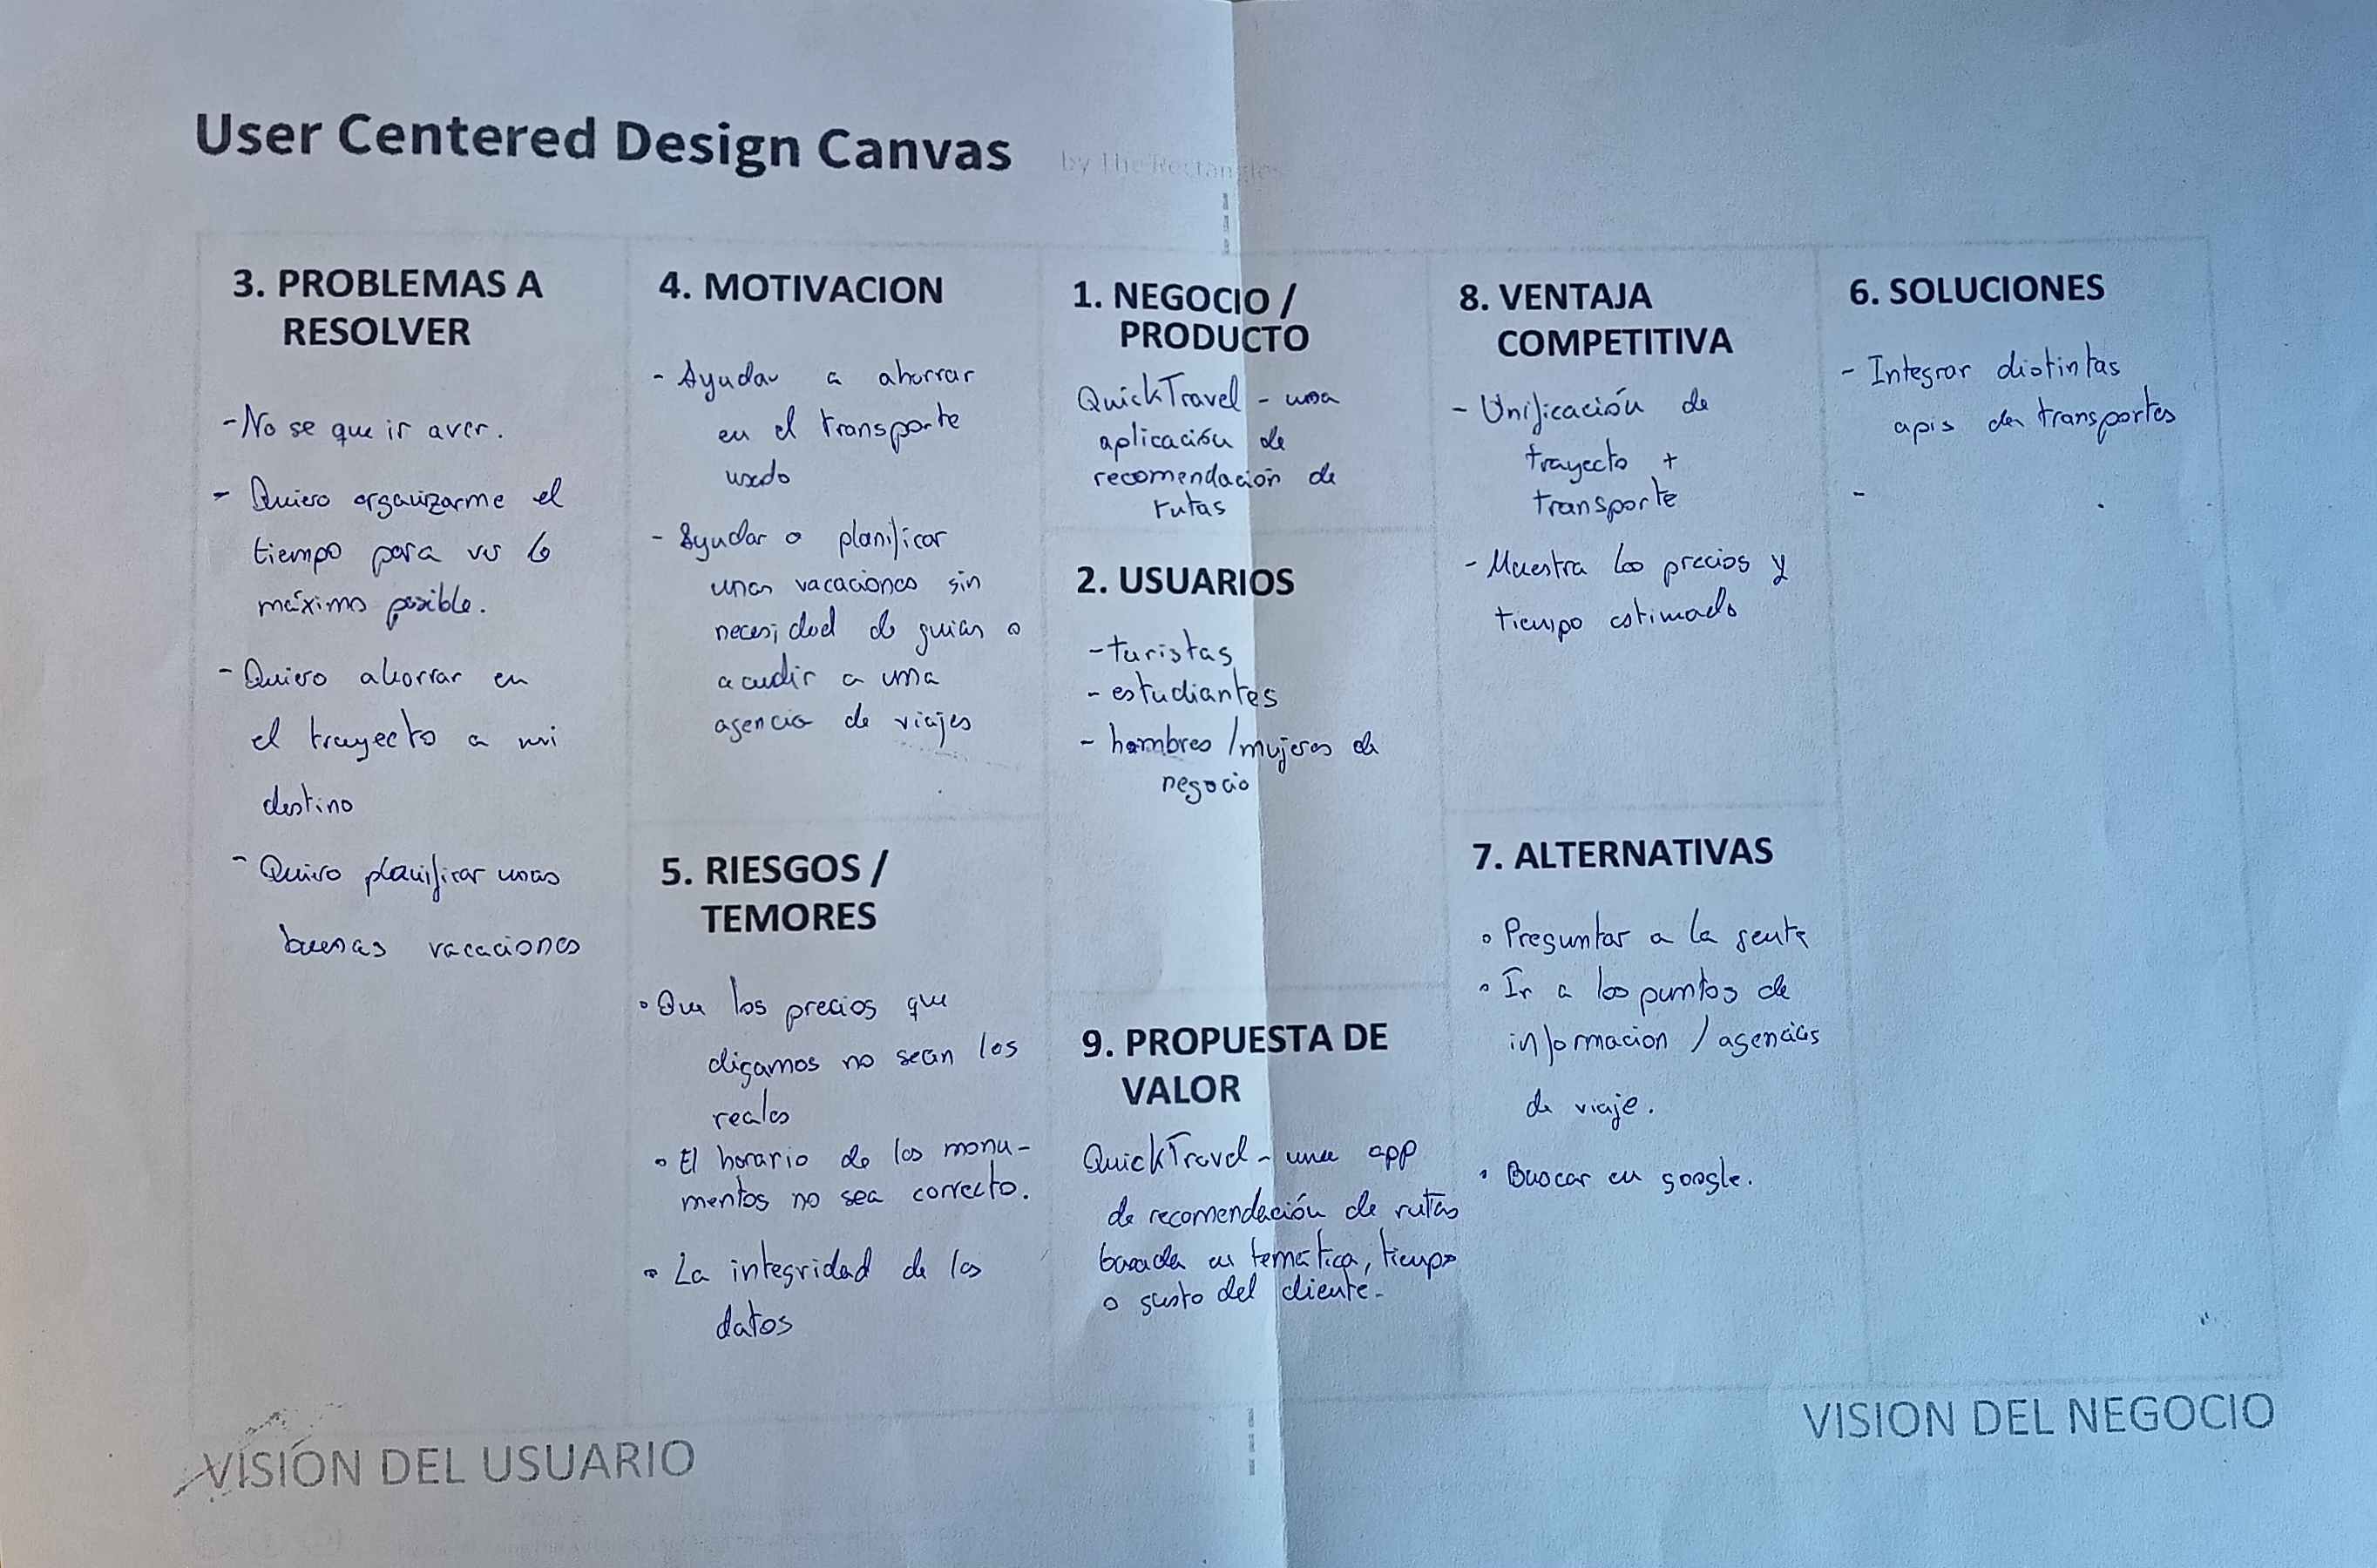 User Centered Design Canvas
by The Rectangles
3. PROBLEMAS A
RESOLVER
-No se que ir aver.
- Quiero organizarme el
tiempo para ver lo
máximo posible.
- Quiero ahorrar en
el trayecto a mi
destino
- Quiero planificar unas
buenas vacaciones
4. MOTIVACION
- Ayudar a ahorrar
en el transporte
usado
- Ayudar a planificar
unas vacaciones sin
necesidad de guias o
acudir a una
agencia de viajes
5. RIESGOS /
TEMORES
• Que los precios que
digamos no sean los
reales
• El horario de los monu-
mentos no sea correcto.
• La integridad de los
datos
1. NEGOCIO /
PRODUCTO
QuickTravel - una
aplicación de
recomendación de
rutas
2. USUARIOS
- turistas
- estudiantes
- hombres / mujeres de
negocio
9. PROPUESTA DE
VALOR
QuickTravel - una app
de recomendación de rutas
basada en temática, tiempo
o gusto del cliente.
8. VENTAJA
COMPETITIVA
- Unificación de
trayecto +
transporte
- Muestra los precios y
tiempo estimado
7. ALTERNATIVAS
• Preguntar a la gente
• Ir a los puntos de
informacion / agencias
de viaje.
• Buscar en google.
6. SOLUCIONES
- Integrar distintas
apis de transportes
-
VISION DEL USUARIO
VISION DEL NEGOCIO